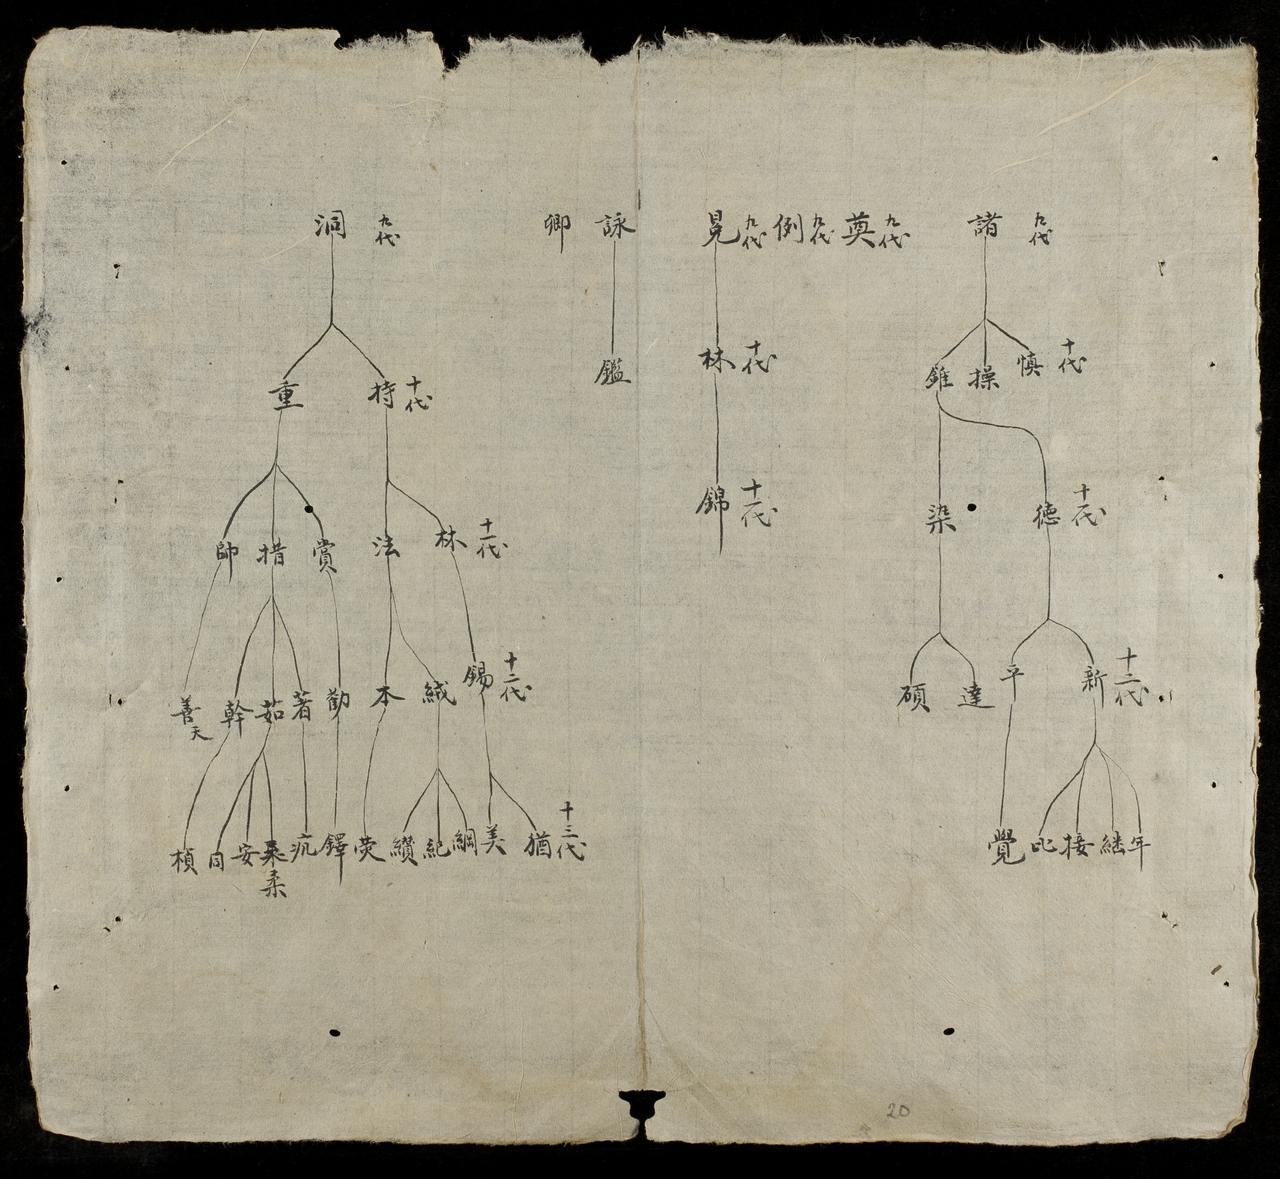 九代 諸 九代 奠 九代 例 九代 晃 詠 卿 九代 洞
十代 慎 操 錐 十代 林 鑑 十代 持 重
十一代 德 染 十一代 錦 十一代 林 法 賞 措 帥
十二代 新 平 達 碩 十二代 錫 絨 本 勸 著 茹 幹 善夭
年 継 接 覺 十三代 猶 美 綱 紀 纘 荧 鐸 安 同 楨
柔
20